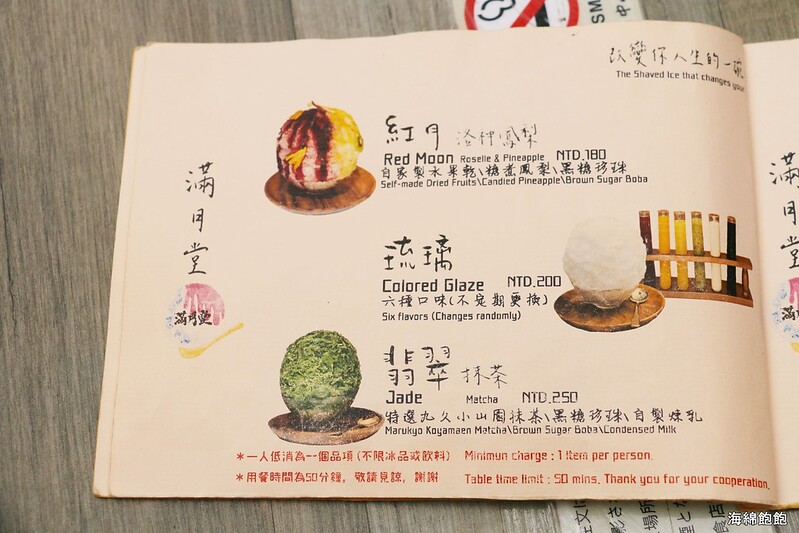 改變你人生的一碗
The Shaved Ice that changes your
滿月堂
紅月 洛神鳳梨
Red Moon Roselle & Pineapple NTD.180
自家製水果乾\糖煮鳳梨\黑糖珍珠
Self-made Dried Fruits\Candied Pineapple\Brown Sugar Boba
琉璃
Colored Glaze NTD.200
六種口味(不定期更換)
Six flavors (Changes randomly)
翡翠 抹茶
Jade Matcha NTD.250
特選丸久小山園抹茶\黑糖珍珠\自製煉乳
Marukyo Koyamaen Matcha\Brown Sugar Boba\Condensed Milk
*一人低消為一個品項(不限冰品或飲料) Minimun charge : 1 item per person.
*用餐時間為50分鐘, 敬請見諒, 謝謝 Table time limit : 50 mins. Thank you for your cooperation.
海綿飽飽